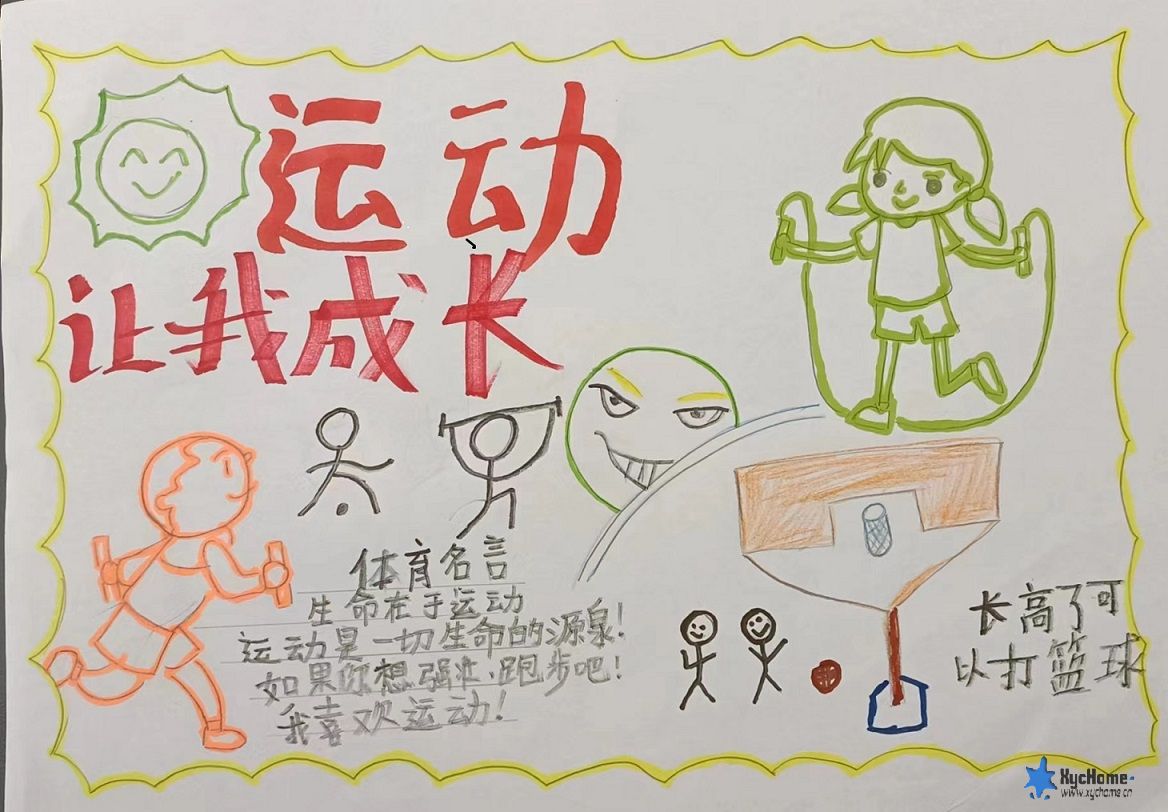 运动
让我成长
体育名言
生命在于运动
运动是一切生命的源泉!
如果你想强壮,跑步吧!
我喜欢运动!
长高了可
以打篮球
XycHome
www.xychome.cn